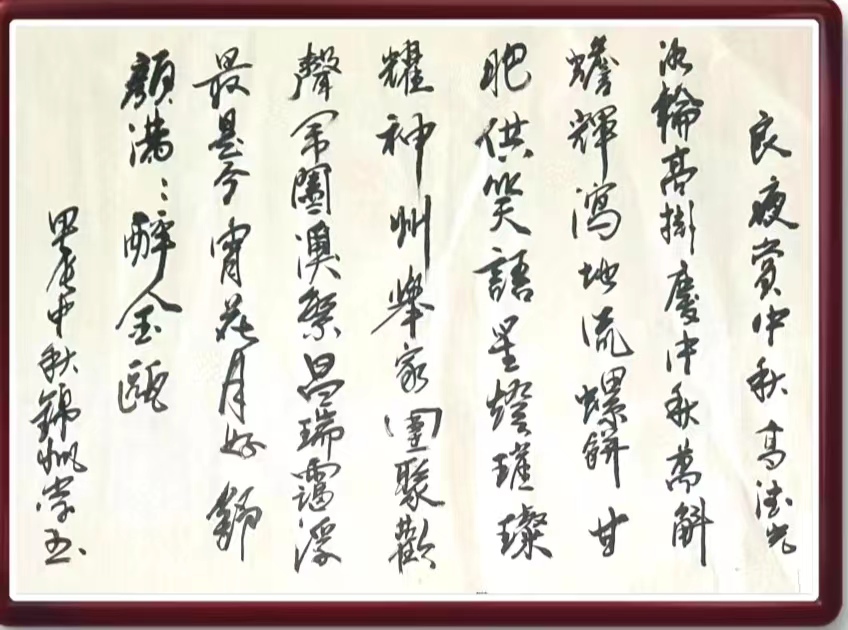 良夜賞中秋 高
冰輪高掛慶中秋萬斛
蟾輝瀉地流螺餅甘
肥供笑語星燈璀璨
耀神州舉家團聚歡
聲闔澳繁昌瑞靄浮
最是今宵花月好
顏滿:醉金甌
甲辰中秋錦帆